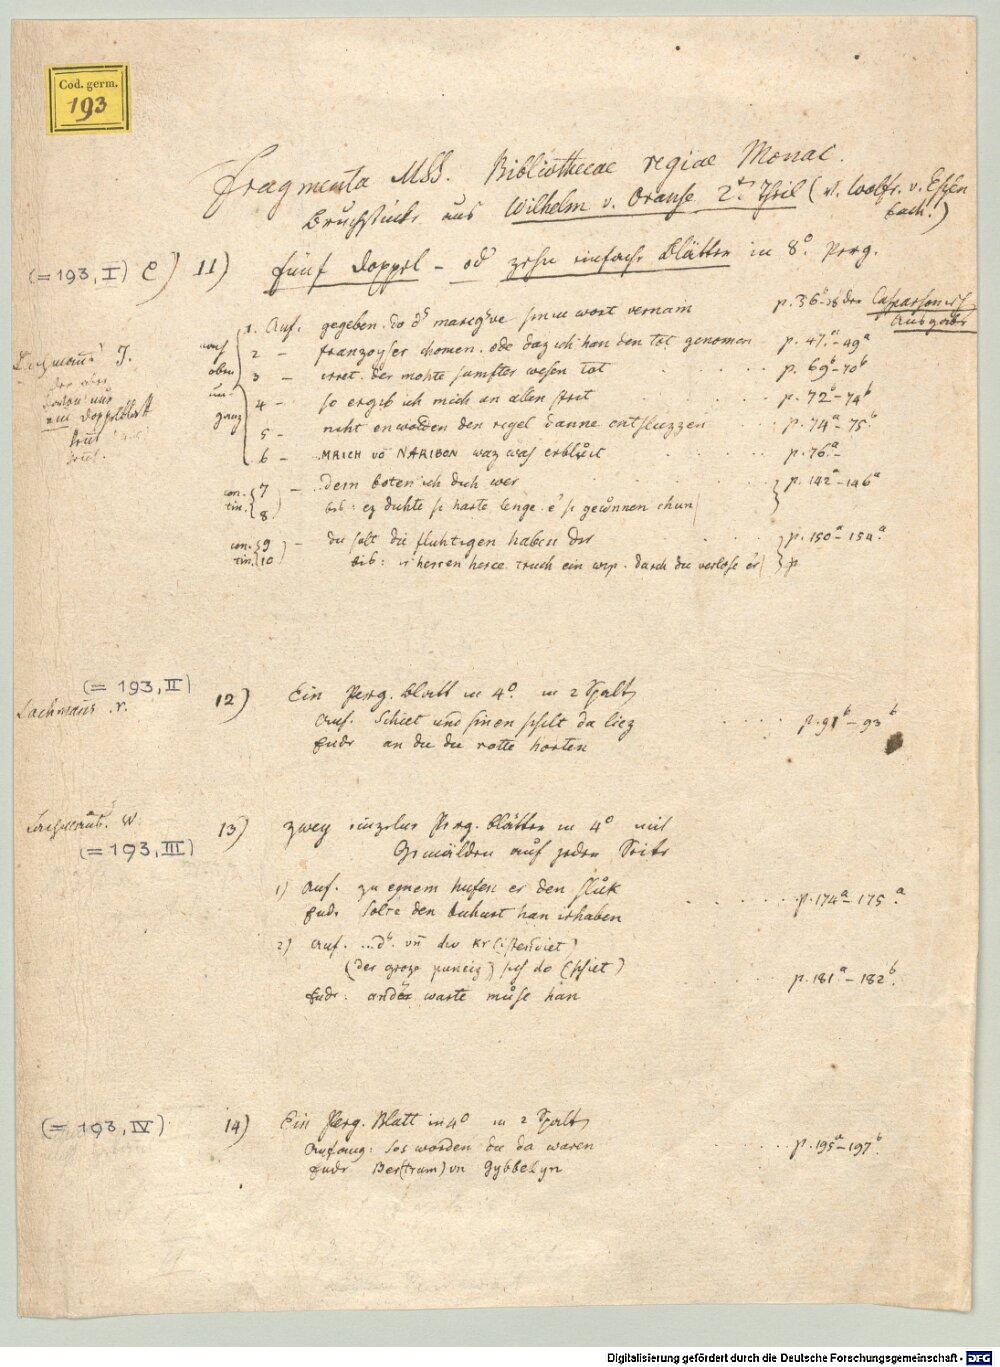 Cod. germ.
193
Fragmenta MSS. Bibliothecae regiae Monac.
Bruchstücke aus Wilhelm v. Oranse 2ter Theil (v. Wolfr. v. Eschenbach.)
(= 193, I) C) 11) fünf Doppel- od zehn einfache Blätter in 8o. Perg.
1. Anf. gegeben. do ds maregve sineu wort vernam p. 36b- der Casparsonisch Ausgabe
2 - franzoyser chomen. ode daz ich han den tot genomen p. 47.a-49a
3 - irret. der mohte samfter wesen tot p. 69b-70b
4 - so ergib ich mich an allen strit p. 72b-74b
5 - niht enwolden den regel danne entfliezzen p. 74a-75b.
6 - MRICH vō NARIBON waz was p. 76.a-
7 - dem boten ich dich wer p. 142a-146a
8. bis: ez duhte si harte lenge. e si gewnnen chun
9 - du solt die fluhtigen haben p. 150a-154a.
10 bis: herren herce truch ein wip. durch die verlose er p
con-
tin.
con-
tin.
Lachmanns J.
ein Doppelblatt
(= 193, II)
Lachmanns r. 12) Ein Perg. Blatt in 4o. in 2 Spalt
Anf. Schiet und sinen schilt da liez p. 91b-93b
Ende an die die rotte horten
Lachmanns. W 13) zwey einzelne Perg. Blätter in 4o mit
(= 193, III) Gemälden auf jeder Seite
1) Anf. zu eynem hufen er den sluk p. 174a-175.a
Ende solte den buhurt han irhaben
2) Anf. ...
(der groze puneiz) sich do (schiet) p. 181a-182b.
Ende: anders warte muse han
(= 193, IV) 14) Ein Perg. Blatt in 4o in 2 Spalt
Anfang: sos worden die da waren p. 195a-197b.
Ende Ber(tram) un Gybbelyn
Digitalisierung gefördert durch die Deutsche Forschungsgemeinschaft - DFG